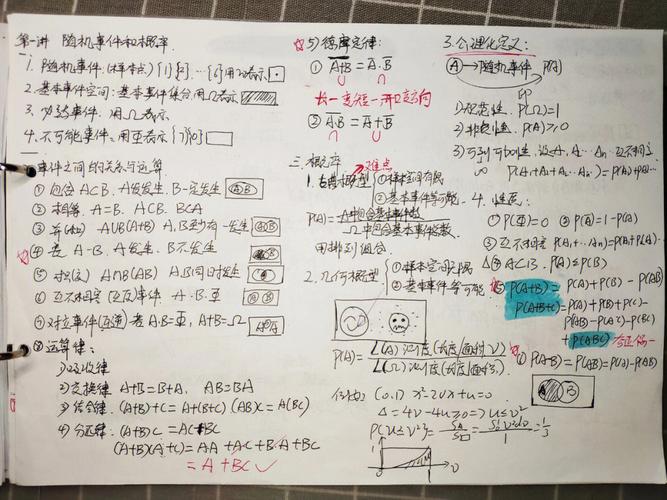 第一讲 随机事件和概率.
1. 随机事件 (样本点)
2. 基本事件空间: 基本事件集合, 用Ω表示
3. 必然事件. 用Ω表示
4. 不可能事件. 用Φ表示
二. 事件之间的关系与运算.
① 包含 A⊂B. A发生, B一定发生
② 相等. A=B. A⊂B. B⊂A
③ 并(和) A∪B(A+B) A,B至少有一发生
④ 差 A-B. A发生. B不发生
⑤ 交 A∩B(AB) A,B同时发生
⑥ 互不相容(互斥)事件 A·B=Φ
⑦ 对立事件(互逆) 若A·B=Φ, A+B=Ω
⑧ 运算律:
1) 吸收律
2) 交换律 A+B=B+A, AB=BA
3) 结合律 (A+B)+C=A+(B+C) (AB)C=A(BC)
4) 分配律 (A+B)C=AC+BC
(A+B)(A+C)=AA+AC+BA+BC
=A+BC✓
5) 德摩定律:
① A+B = A·B
长一变短一开口变方向
② A·B = A+B
三. 概率
难点
1. 古典概型 ①样本空间有限
②基本事件等可能.
P(A)= A中包含基本事件数
Ω中包含基本事件数.
用排列组合.
2. 几何概型 ①样本空间无限
②基本事件等可能
P(A)= L(A) 测度(长度/面积/V)
L(Ω) 测度(长度/面积).
例如: (0,1) x²-2vx+u=0
Δ=4v²-4u≥0 ⇒ u≤v²
P{u≤v²}= = =1/3
3. 公理化定义:
A→随机事件 P(A)
1) 规范性. P(Ω)=1
2) 非负性. P(A)≥0
3) 可列可加性. 设A₁ A₂… Aₙ… 互不相容
P(A₁+A₂+Aₙ…)=P(A₁)+P(A₂)…
4. 性质:
① P(Φ)=0 ② P(A)=1-P(A)
③ 互不相容 P(A₁+…Aₙ)=P(A₁)+P(A₂)…
④ A⊂B. P(A)≤P(B)
⑤ P(A+B)=P(A)+P(B)-P(AB)
P(A+B+C)=P(A)+P(B)+P(C)-
P(AB)-P(AC)-P(BC)
+P(ABC)
⑥ P(A-B)=P(AB)=P(A)-P(AB)